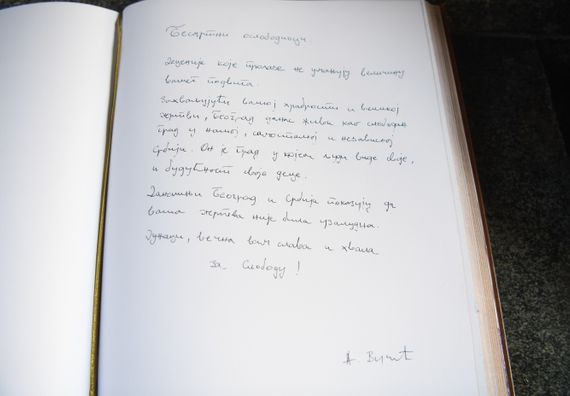 Бесмртни ослободиоци
Деценије које пролазе не умањују величину
вашег подвига.
Захваљујући вашој храбрости и великој
жртви, Београд данас живи као слободни
град у нашој, самосталној и независној
Србији. Он је град у којем људи виде своју,
и будућност своје деце.
Данашњи Београд и Србија показују да
ваша жртва није била узалудна.
Јунаци, вечна вам слава и хвала
за Слободу!
А. Вучић